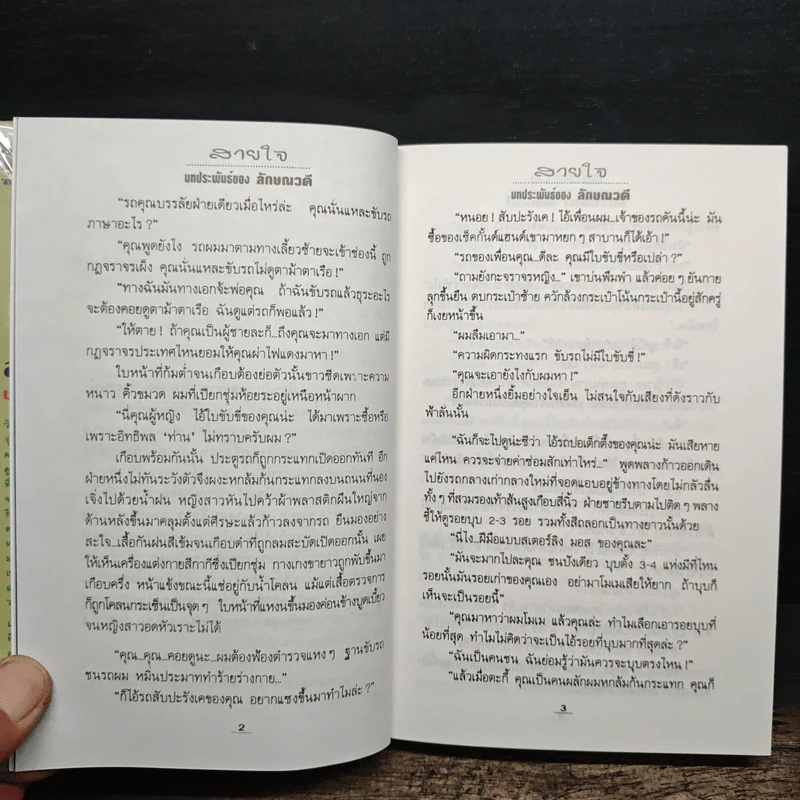 สายใจ
บทประพันธ์ของ ลักษณวดี
"รถคุณบรรลัยฝ่ายเดียวเมื่อไหร่ล่ะ คุณนั่นแหละขับรถ
ภาษาอะไร ?"
"คุณพูดยังไง รถผมมาตามทางเลี้ยวซ้ายจะเข้าช่องนี้ ถูก
กฎจราจรเผ็ง คุณนั่นแหละขับรถไม่ดูตาม้าตาเรือ !"
"ทางฉันมันทางเอกจ้ะพ่อคุณ ถ้าฉันขับรถแล้วธุระอะไร
จะต้องคอยดูตาม้าตาเรือ ฉันดูแต่รถก็พอแล้ว !"
"ให้ตาย ! ถ้าคุณเป็นผู้ชายละก็...ถึงคุณจะมาทางเอก แต่มี
กฎจราจรประเทศไหนยอมให้คุณผ่าไฟแดงมาหา !"
ใบหน้าที่ก้มต่ำจนเกือบต้องย่อตัวนั้นขาวซีดเพราะความ
หนาว คิ้วขมวด ผมที่เปียกชุ่มห้อยระอยู่เหนือหน้าผาก
"นี่คุณผู้หญิง ไอ้ใบขับขี่ของคุณน่ะ ได้มาเพราะซื้อหรือ
เพราะอิทธิพล 'ท่าน' ไม่ทราบครับผม ?"
เกือบพร้อมกันนั้น ประตูรถก็ถูกกระแทกเปิดออกทันที อีก
ฝ่ายหนึ่งไม่ทันระวังตัวจึงผงะหกล้มก้นกระแทกลงบนถนนที่นอง
เจิ่งไปด้วยน้ำฝน หญิงสาวหันไปคว้าผ้าพลาสติกผืนใหญ่จาก
ด้านหลังขึ้นมาคลุมตั้งแต่ศีรษะแล้วก้าวลงจากรถ ยืนมองอย่าง
สะใจ...เสื้อกันฝนสีเข้มจนเกือบดำที่ถูกลมสะบัดเปิดออกนั้น เผย
ให้เห็นเครื่องแต่งกายสีกากีซึ่งเปียกชุ่ม กางเกงขายาวถูกพับขึ้นมา
เกือบครึ่ง หน้าแข้งขณะนี้แช่อยู่กับน้ำโคลน แม้แต่เสื้อตรวจการ
ก็ถูกโคลนกระเซ็นเป็นจุด ๆ ใบหน้าที่แหงนขึ้นมองค่อนข้างบูดเบี้ยว
จนหญิงสาวอดหัวเราะไม่ได้
"คุณ...คุณ...คอยดูนะ...ผมต้องฟ้องตำรวจแหง ๆ ฐานขับรถ
ชนรถผม หมิ่นประมาททำร้ายร่างกาย..."
"ก็ไอ้รถสับปะรังเคของคุณ อยากแซงขึ้นมาทำไมล่ะ ?"
2
สายใจ
บทประพันธ์ของ ลักษณวดี
"หนอย ! สับปะรังเค ! ไอ้เพื่อนผม...เจ้าของรถคันนี้น่ะ มัน
ซื้อของเซ็คกั้นด์แฮนด์เขามาหยก ๆ สาบานก็ได้เอ้า !"
"รถของเพื่อนคุณ...ดีละ คุณมีใบขับขี่หรือเปล่า ?"
"ถามยังกะจราจรหญิง..." เขาบ่นพึมพำ แล้วค่อย ๆ ยันกาย
ลุกขึ้นยืน ตบกระเป๋าซ้าย ควักล้วงกระเป๋าโน้นกระเป๋านี้อยู่สักครู่
ก็เงยหน้าขึ้น
"ผมลืมเอามา..."
"ความผิดกระทงแรก ขับรถไม่มีใบขับขี่ !"
"คุณจะเอายังไงกับผมหา !"
อีกฝ่ายหนึ่งยิ้มอย่างใจเย็น ไม่สนใจกับเสียงที่ดังราวกับ
ฟ้าลั่นนั้น
"ฉันก็จะไปดูน่ะซีว่า ไอ้รถปอเต็กตึ๊งของคุณน่ะ มันเสียหาย
แค่ไหน ควรจะจ่ายค่าซ่อมสักเท่าไหร่..." พูดพลางก้าวออกเดิน
ไปยังรถกลางเก่ากลางใหม่ที่จอดแอบอยู่ข้างทางโดยไม่กลัวลื่น
ทั้ง ๆ ที่สวมรองเท้าส้นสูงเกือบสี่นิ้ว ฝ่ายชายรีบตามไปติด ๆ พลาง
ชี้ให้ดูรอยบุบ 2-3 รอย รวมทั้งสีถลอกเป็นทางยาวนั้นด้วย
"นี่ไง...ฝีมือแบบสเตอร์ลิง มอส ของคุณละ"
"มันจะมากไปละคุณ ชนปังเดียว บุบตั้ง 3-4 แห่งมีที่ไหน
รอยนั้นมันรอยเก่าของคุณเอง อย่ามาโมเมเสียให้ยาก ถ้าบุบก็
เห็นจะเป็นรอยนี้"
"คุณมาหาว่าผมโมเม แล้วคุณล่ะ ทำไมเลือกเอารอยบุบที่
น้อยที่สุด ทำไมไม่คิดว่าจะเป็นไอ้รอยที่บุบมากที่สุดล่ะ ?"
"ฉันเป็นคนชน ฉันย่อมรู้ว่ามันควรจะบุบตรงไหน !"
"แล้วเมื่อตะกี้ คุณเป็นคนผลักผมหกล้มก้นกระแทก คุณก็
3